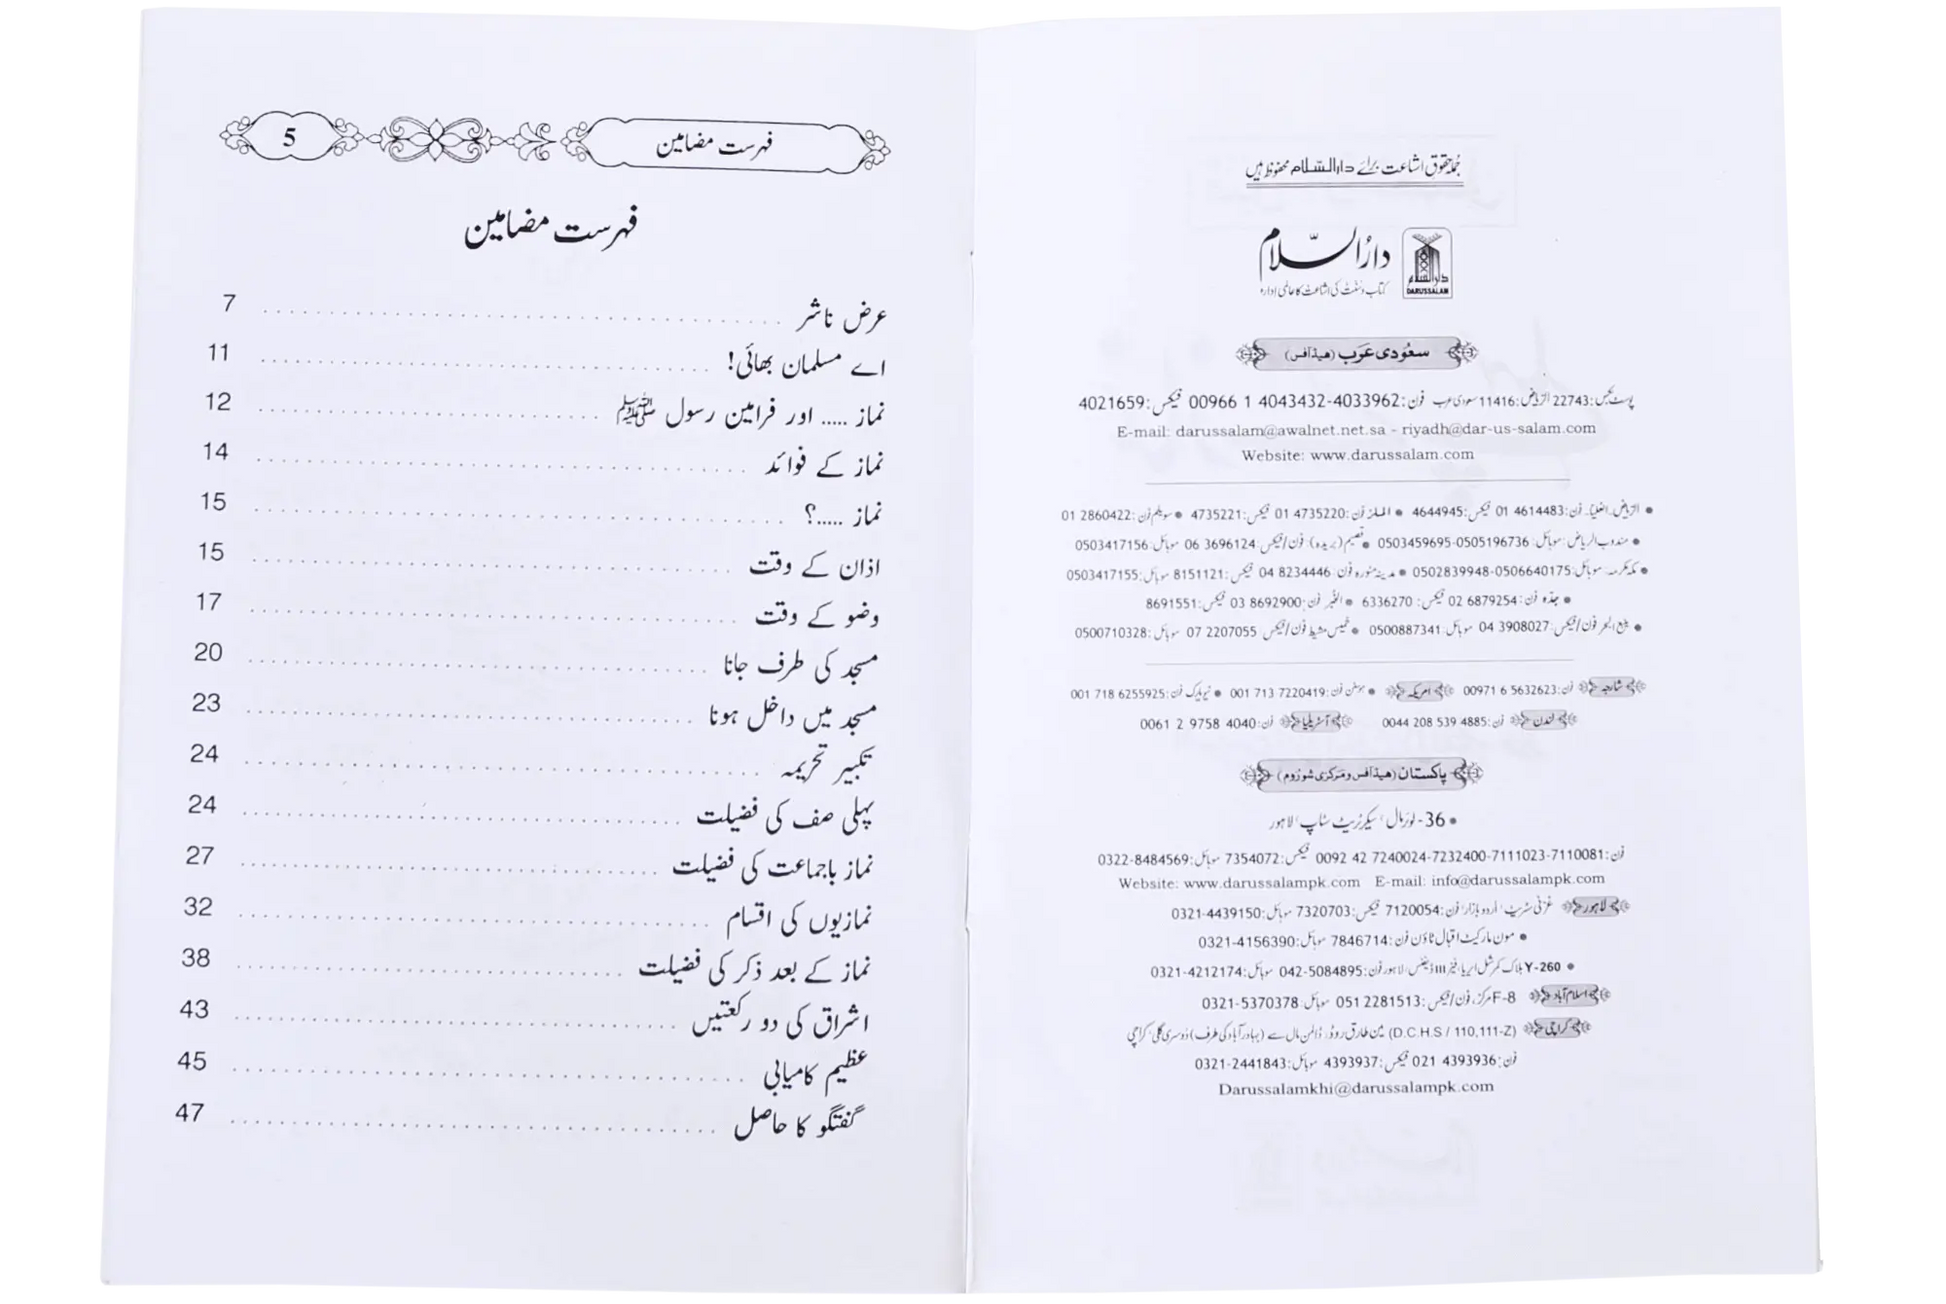 جملہ حقوق اشاعت برائے دارالسلام محفوظ ہیں
دارالسلام
کتاب و سنت کی اشاعت کا عالمی ادارہ
دارالسلام
DARUSSALAM
سعودی عرب (ہیڈ آفس)
پوسٹ بکس:22743 الریاض:11416 سعودی عرب فون:00966 1 4043432-4033962 فیکس:4021659
E-mail: darussalam@awalnet.net.sa - riyadh@dar-us-salam.com
Website: www.darussalam.com
● الریاض۔العلیا۔ فون:01 4614483 فیکس:4644945 ● الملز فون:01 4735220 فیکس:4735221 ● سویلم فون:01 2860422
● مندوب الریاض: موبائل:0503459695-0505196736 ● قصیم (بریدہ): فون/فیکس:06 3696124 موبائل:0503417156
● مکہ مکرمہ: موبائل:0502839948-0506640175 ● مدینہ منورہ فون:04 8234446 فیکس:8151121 موبائل:0503417155
● جدہ فون:02 6879254 فیکس:6336270 ● الخبر فون:03 8692900 فیکس:8691551
● ینبع البحر فون/فیکس:04 3908027 موبائل:0500887341 ● خمیس مشیط فون/فیکس:07 2207055 موبائل:0500710328
شارجہ فون:00971 6 5632623 امریکہ ● ہوسٹن فون:001 713 7220419 ● نیویارک فون:001 718 6255925
لندن فون:0044 208 539 4885 آسٹریلیا فون:0061 2 9758 4040
پاکستان (ہیڈ آفس و مرکزی شوروم)
● 36- لوئر مال، سیکرٹریٹ سٹاپ، لاہور
فون:0092 42 7240024-7232400-7111023-7110081 فیکس:7354072 موبائل:0322-8484569
Website: www.darussalampk.com E-mail: info@darussalampk.com
لاہور غزنی سٹریٹ، اردو بازار فون:7120054 فیکس:7320703 موبائل:0321-4439150
● مون مارکیٹ اقبال ٹاؤن فون:7846714 موبائل:0321-4156390
● Y-260 بلاک کمرشل ایریا، فیز III ڈیفنس، لاہور فون:042-5084895 موبائل:0321-4212174
اسلام آباد F-8 مرکز، فون/فیکس:051 2281513 موبائل:0321-5370378
کراچی (D.C.H.S / 110,111-Z) مین طارق روڈ، ڈالمن مال سے (بہادر آباد کی طرف) دوسری گلی، کراچی
فون:021 4393936 فیکس:4393937 موبائل:0321-2441843
Darussalamkhi@darussalampk.com
فہرست مضامین 5
فہرست مضامین
عرض ناشر 7
اے مسلمان بھائی! 11
نماز ..... اور فرامین رسول ﷺ 12
نماز کے فوائد 14
نماز .....؟ 15
اذان کے وقت 15
وضو کے وقت 17
مسجد کی طرف جانا 20
مسجد میں داخل ہونا 23
تکبیر تحریمہ 24
پہلی صف کی فضیلت 24
نماز باجماعت کی فضیلت 27
نمازیوں کی اقسام 32
نماز کے بعد ذکر کی فضیلت 38
اشراق کی دو رکعتیں 43
عظیم کامیابی 45
گفتگو کا حاصل 47